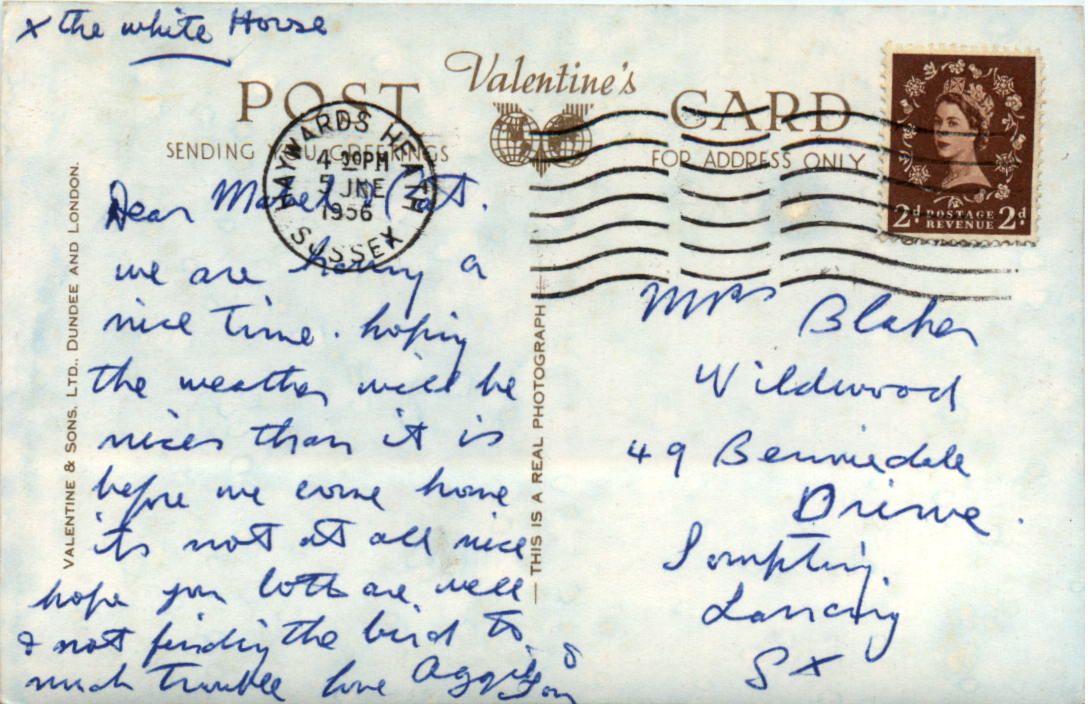 x the white House
Valentine's
POST CARD
SENDING YOU GREETINGS
FOR ADDRESS ONLY
HAYWARDS HEATH
4 30PM
5 JNE
1956
SUSSEX
2d POSTAGE 2d
REVENUE
VALENTINE & SONS, LTD., DUNDEE AND LONDON.
THIS IS A REAL PHOTOGRAPH
Dear Mabel & Pat.
we are having a
nice time. hoping
the weather will be
nicer than it is
before we come home
its not at all nice
hope you both are well
& not finding the bird to
much trouble love Aggie &
Mrs Blaker
Wildwood
49 Berriedale
Drive.
Sompting.
Lancing
SX